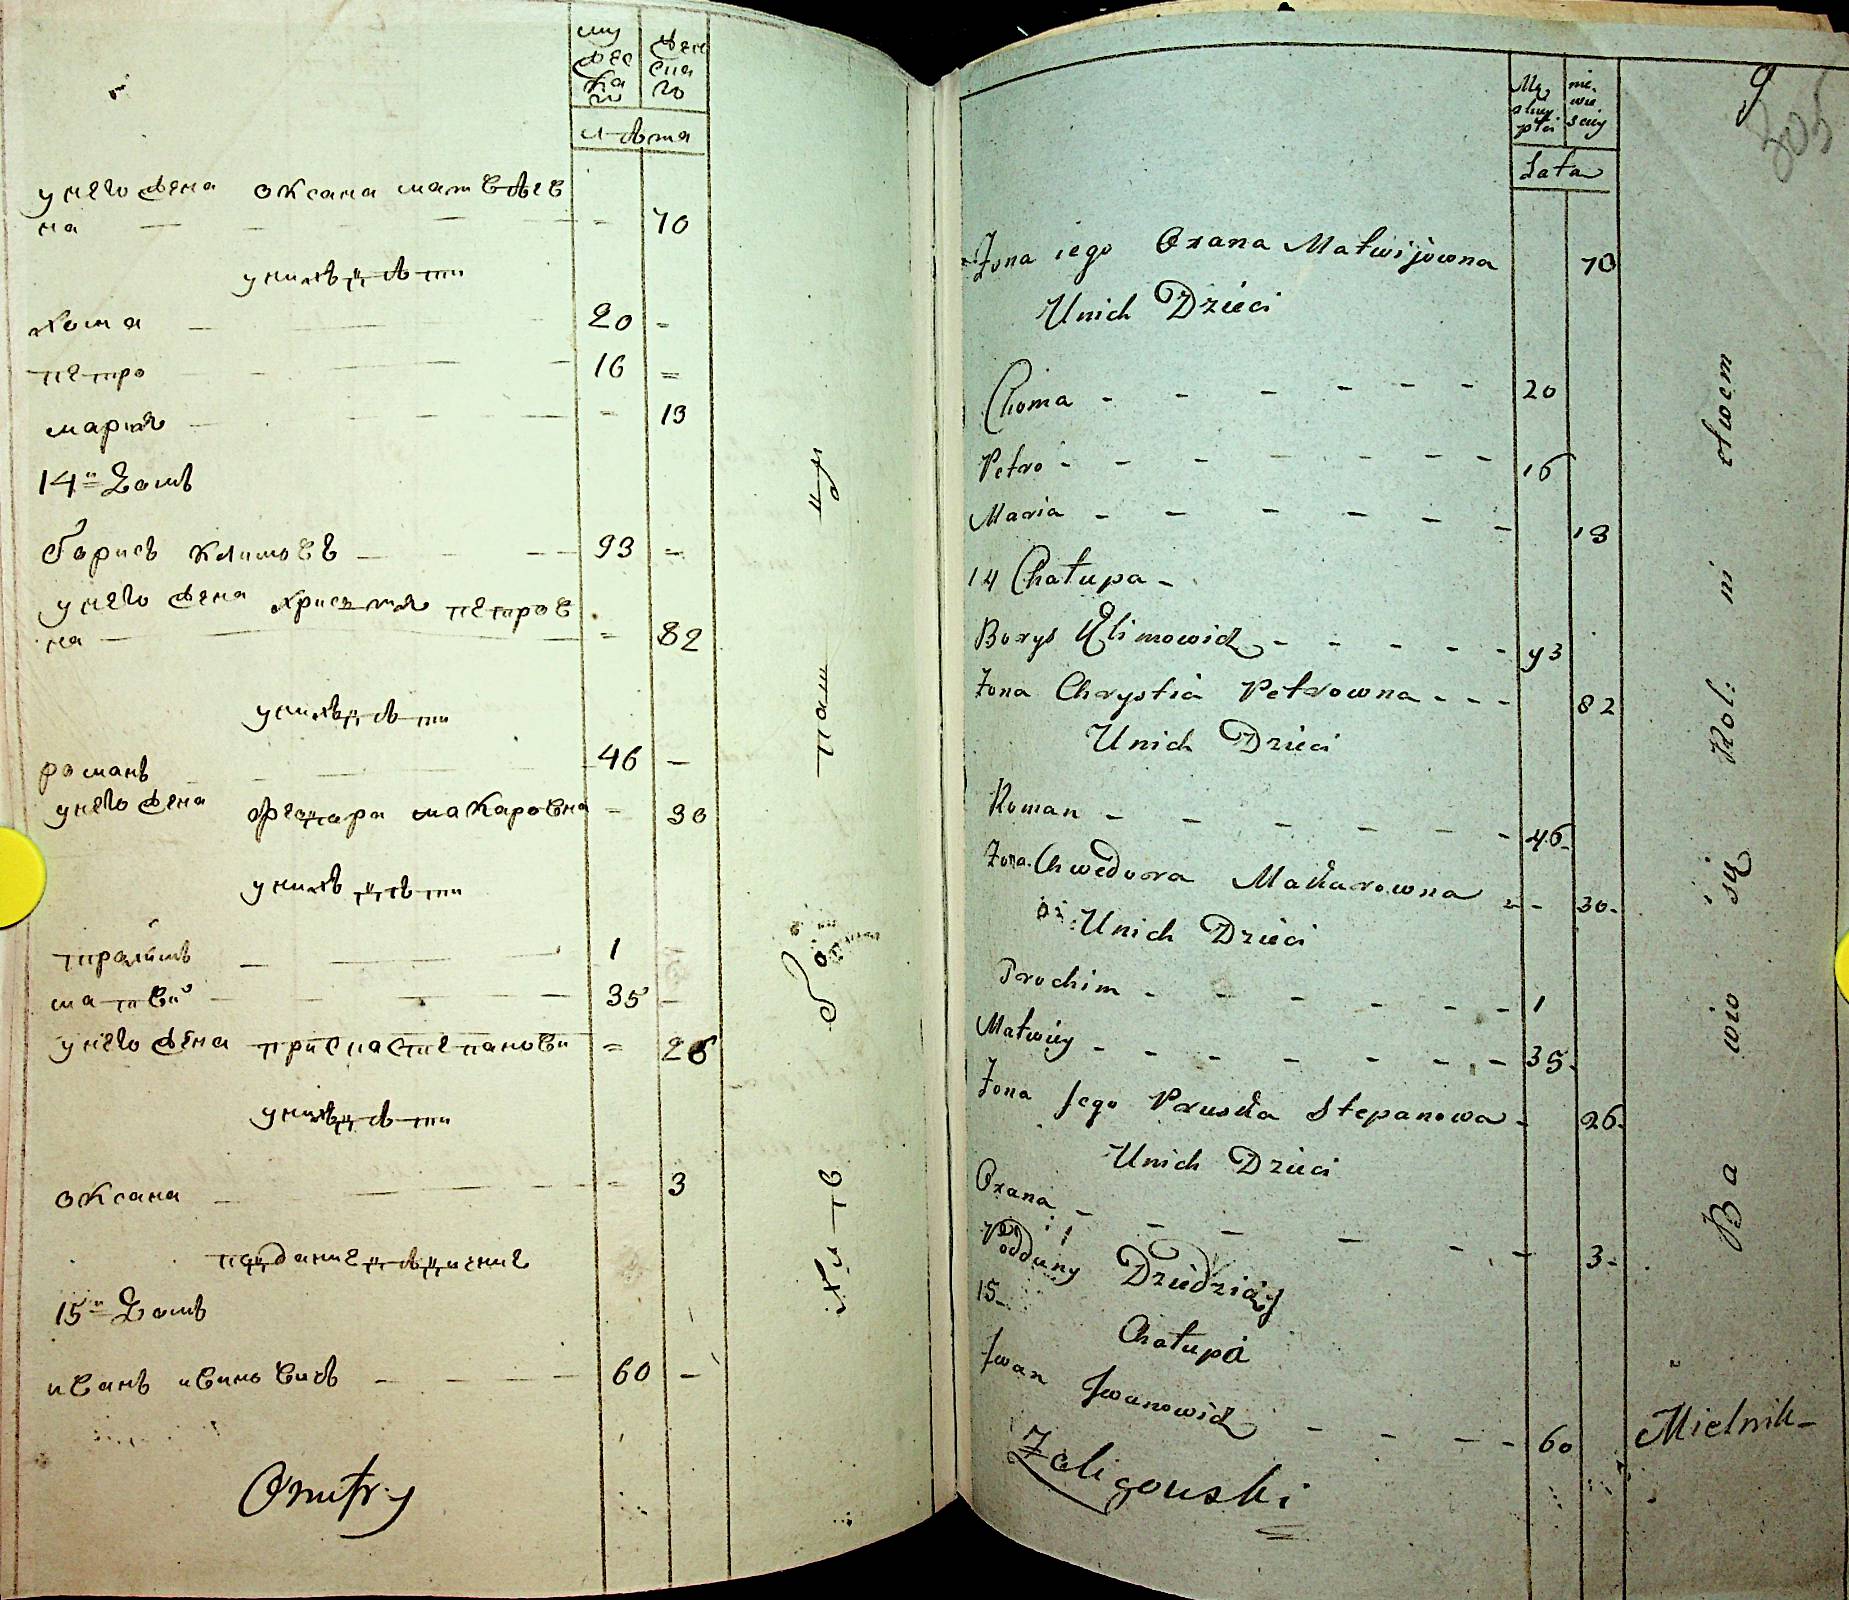 му
жес
ка
го
жен
ска
го
лѣта
у него жена оксана матвѣев
на — — — — 70
у нихъ дѣти
хома — — 20 -
петро — — 16 =
мария — — - 13
14й домъ
борисъ климовъ — — 93 =
у него жена христя петров
на — — = 82
у нихъ дѣти
романъ — — 46 —
у него жена феодора макаровна - 30
у нихъ дѣти
прохимъ — — 1 -
матвий — — 35 -
у него жена приска степанови = 26
у нихъ дѣти
оксана — — - 3
подданые дѣдичние
15й домъ
иванъ ивановичъ — — — 60 —
Dmitry
9
305
Mę
skiey
płci
nie
wie
sciey
Lata
Żona iego Oxana Matwijowna 70
Unich Dzieci
Choma - - - - - - 20
Petro - - - - - - 16
Maria - - - - - - 13
14 Chałupa -
Borys Klimowicz - - - - - 93
Żona Chrystia Petrowna - - - 82
Unich Dzieci
Roman - - - - - - 46
Żona Chwedora Makarowna - - 30
Unich Dzieci
Prochim - - - - - - 1
Matwiey - - - - - - 35
Żona Jego Pruska Stepanowa - 26
Unich Dzieci
Oxana - - - - - - 3
Poddany Dziedziczny
15
Chałupa
Iwan Iwanowicz - - - - 60 Mielnik -
Żeligowski
Ba wio i się Rol: ni ctwem